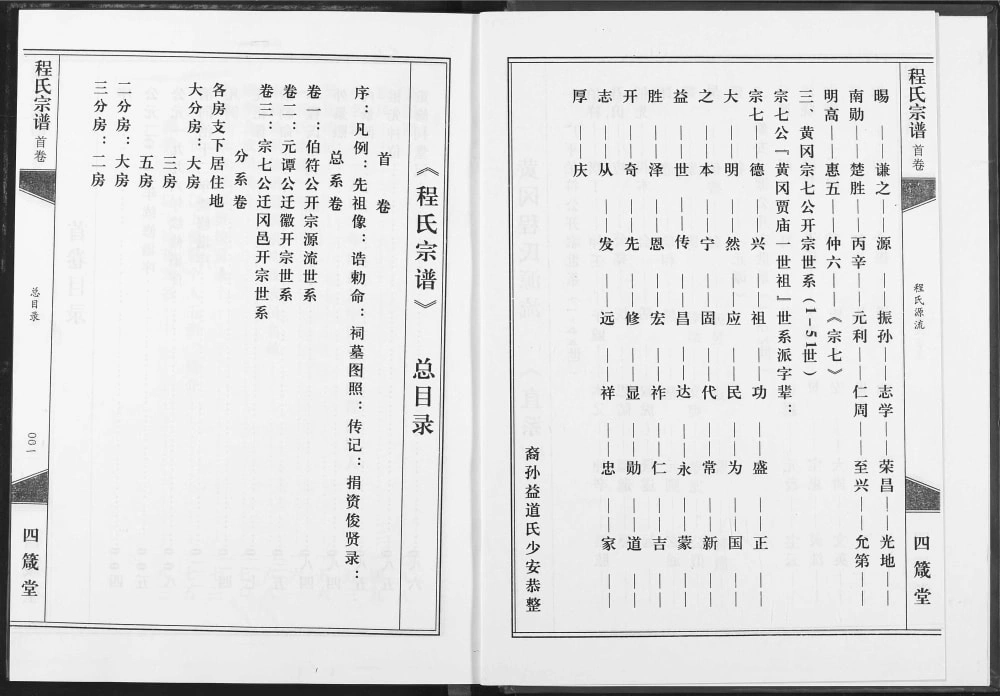 程氏宗谱 首卷
程氏源流
四箴堂
暘——谦之——源——振孙——志学——荣昌——光地——
南勋——楚胜——丙辛——元利——仁周——至兴——允第——
明高——惠五——仲六——《宗七》
三、黄冈宗七公开宗世系(1-51世)
宗七公『黄冈贾庙一世祖』世系派字辈:
宗七——德——兴——祖——功——盛——正——
大——明——然——应——民——为——国——
之——本——宁——固——代——常——新——
益——世——传——昌——达——永——蒙——
胜——泽——恩——宏——祚——仁——吉——
开——奇——先——修——显——勋——道——
志——从——发——远——祥——忠——家——
厚——庆
裔孙益道氏少安恭整
《程氏宗谱》 总目录
首卷
序:凡例:先祖像:诰勅命:祠墓图照:传记:捐资俊贤录:
总系卷
卷一:伯符公开宗源流世系
卷二:元谭公迁徽开宗世系
卷三:宗七公迁冈邑开宗世系
分系卷
各房支下居住地
大分房:大房
三房
五房
二分房:大房
三分房:二房
程氏宗谱 首卷
总目录
001
四箴堂